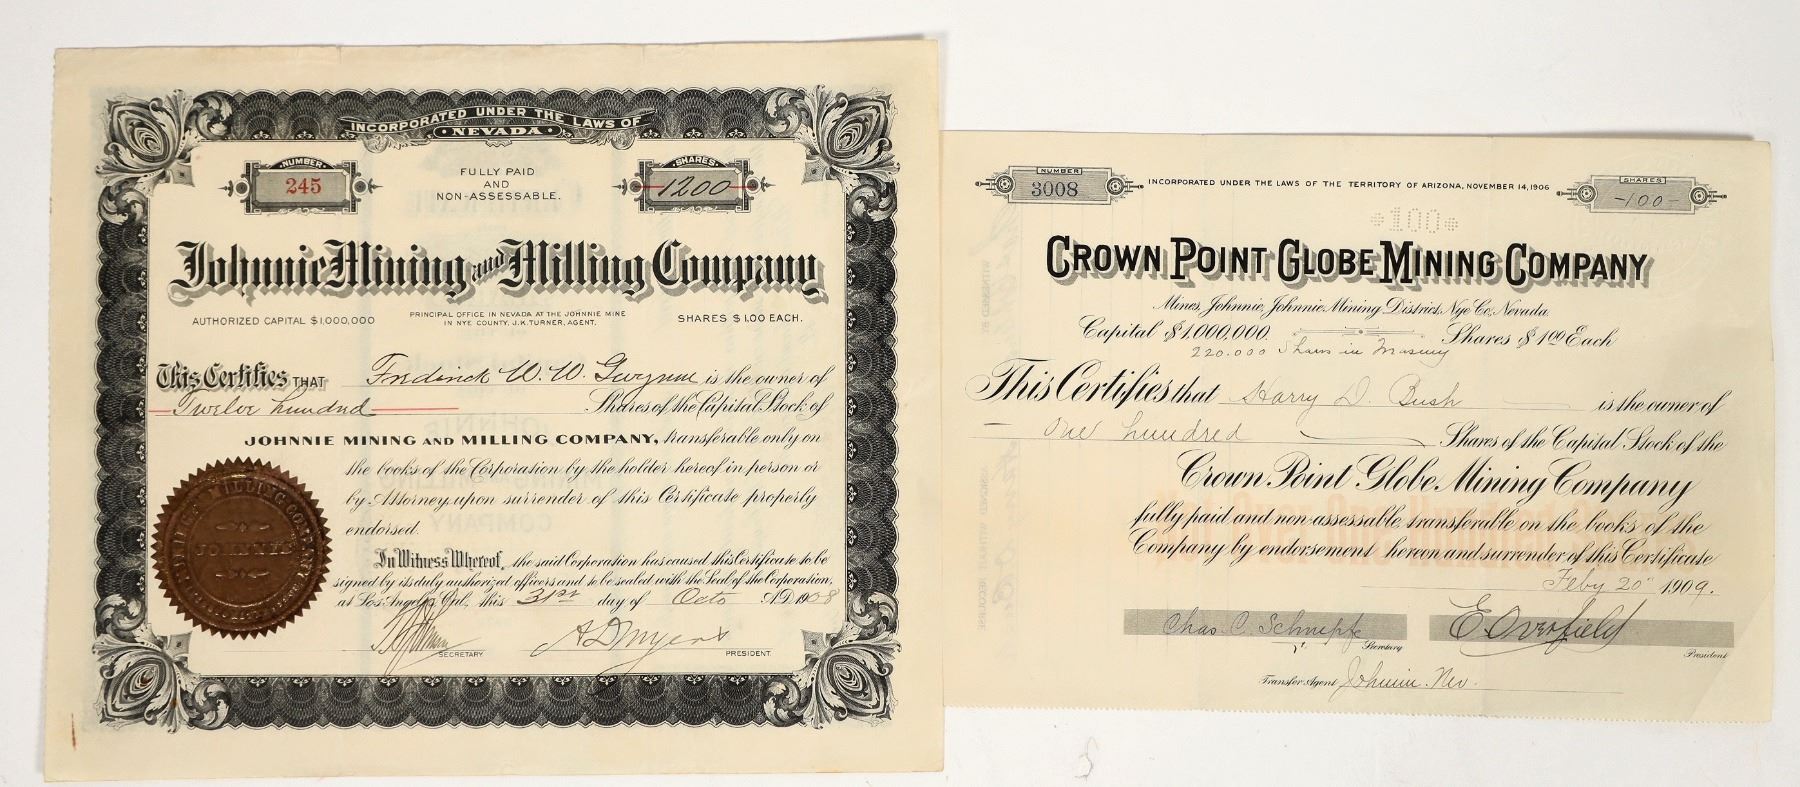 INCORPORATED UNDER THE LAWS OF
NEVADA
NUMBER
245
FULLY PAID
AND
NON-ASSESSABLE.
SHARES
1200
Johnnie Mining and Milling Company
AUTHORIZED CAPITAL $1,000,000
PRINCIPAL OFFICE IN NEVADA AT THE JOHNNIE MINE
IN NYE COUNTY, J.K. TURNER, AGENT.
SHARES $1.00 EACH.
This Certifies THAT Frederick W. W. Gwynne is the owner of
Twelve hundred Shares of the Capital Stock of
JOHNNIE MINING AND MILLING COMPANY, transferable only on
the books of the Corporation by the holder hereof in person or
by Attorney, upon surrender of this Certificate properly
endorsed.
In Witness Whereof, the said Corporation has caused this Certificate to be
signed by its duly authorized officers and to be sealed with the Seal of the Corporation,
at Los Angeles, Cal., this 31st day of Octo A.D. 1908
SECRETARY.
A D Myers
PRESIDENT.
JOHNNIE
NUMBER
3008
INCORPORATED UNDER THE LAWS OF THE TERRITORY OF ARIZONA, NOVEMBER 14, 1906
SHARES
-100-
*100*
CROWN POINT GLOBE MINING COMPANY
Mines, Johnnie, Johnnie Mining District, Nye Co, Nevada.
Capital $1,000,000. Shares $1.00 Each
220.000 Shares in Treasury
This Certifies that Harry D. Bush is the owner of
One hundred Shares of the Capital Stock of the
Crown Point Globe Mining Company
fully paid and non-assessable transferable on the books of the
Company by endorsement hereon and surrender of this Certificate
Feby 20" 1909.
Chas. C. Schnepfe
Secretary
E. Overfield
President
Transfer Agent Johnnie. Nev.